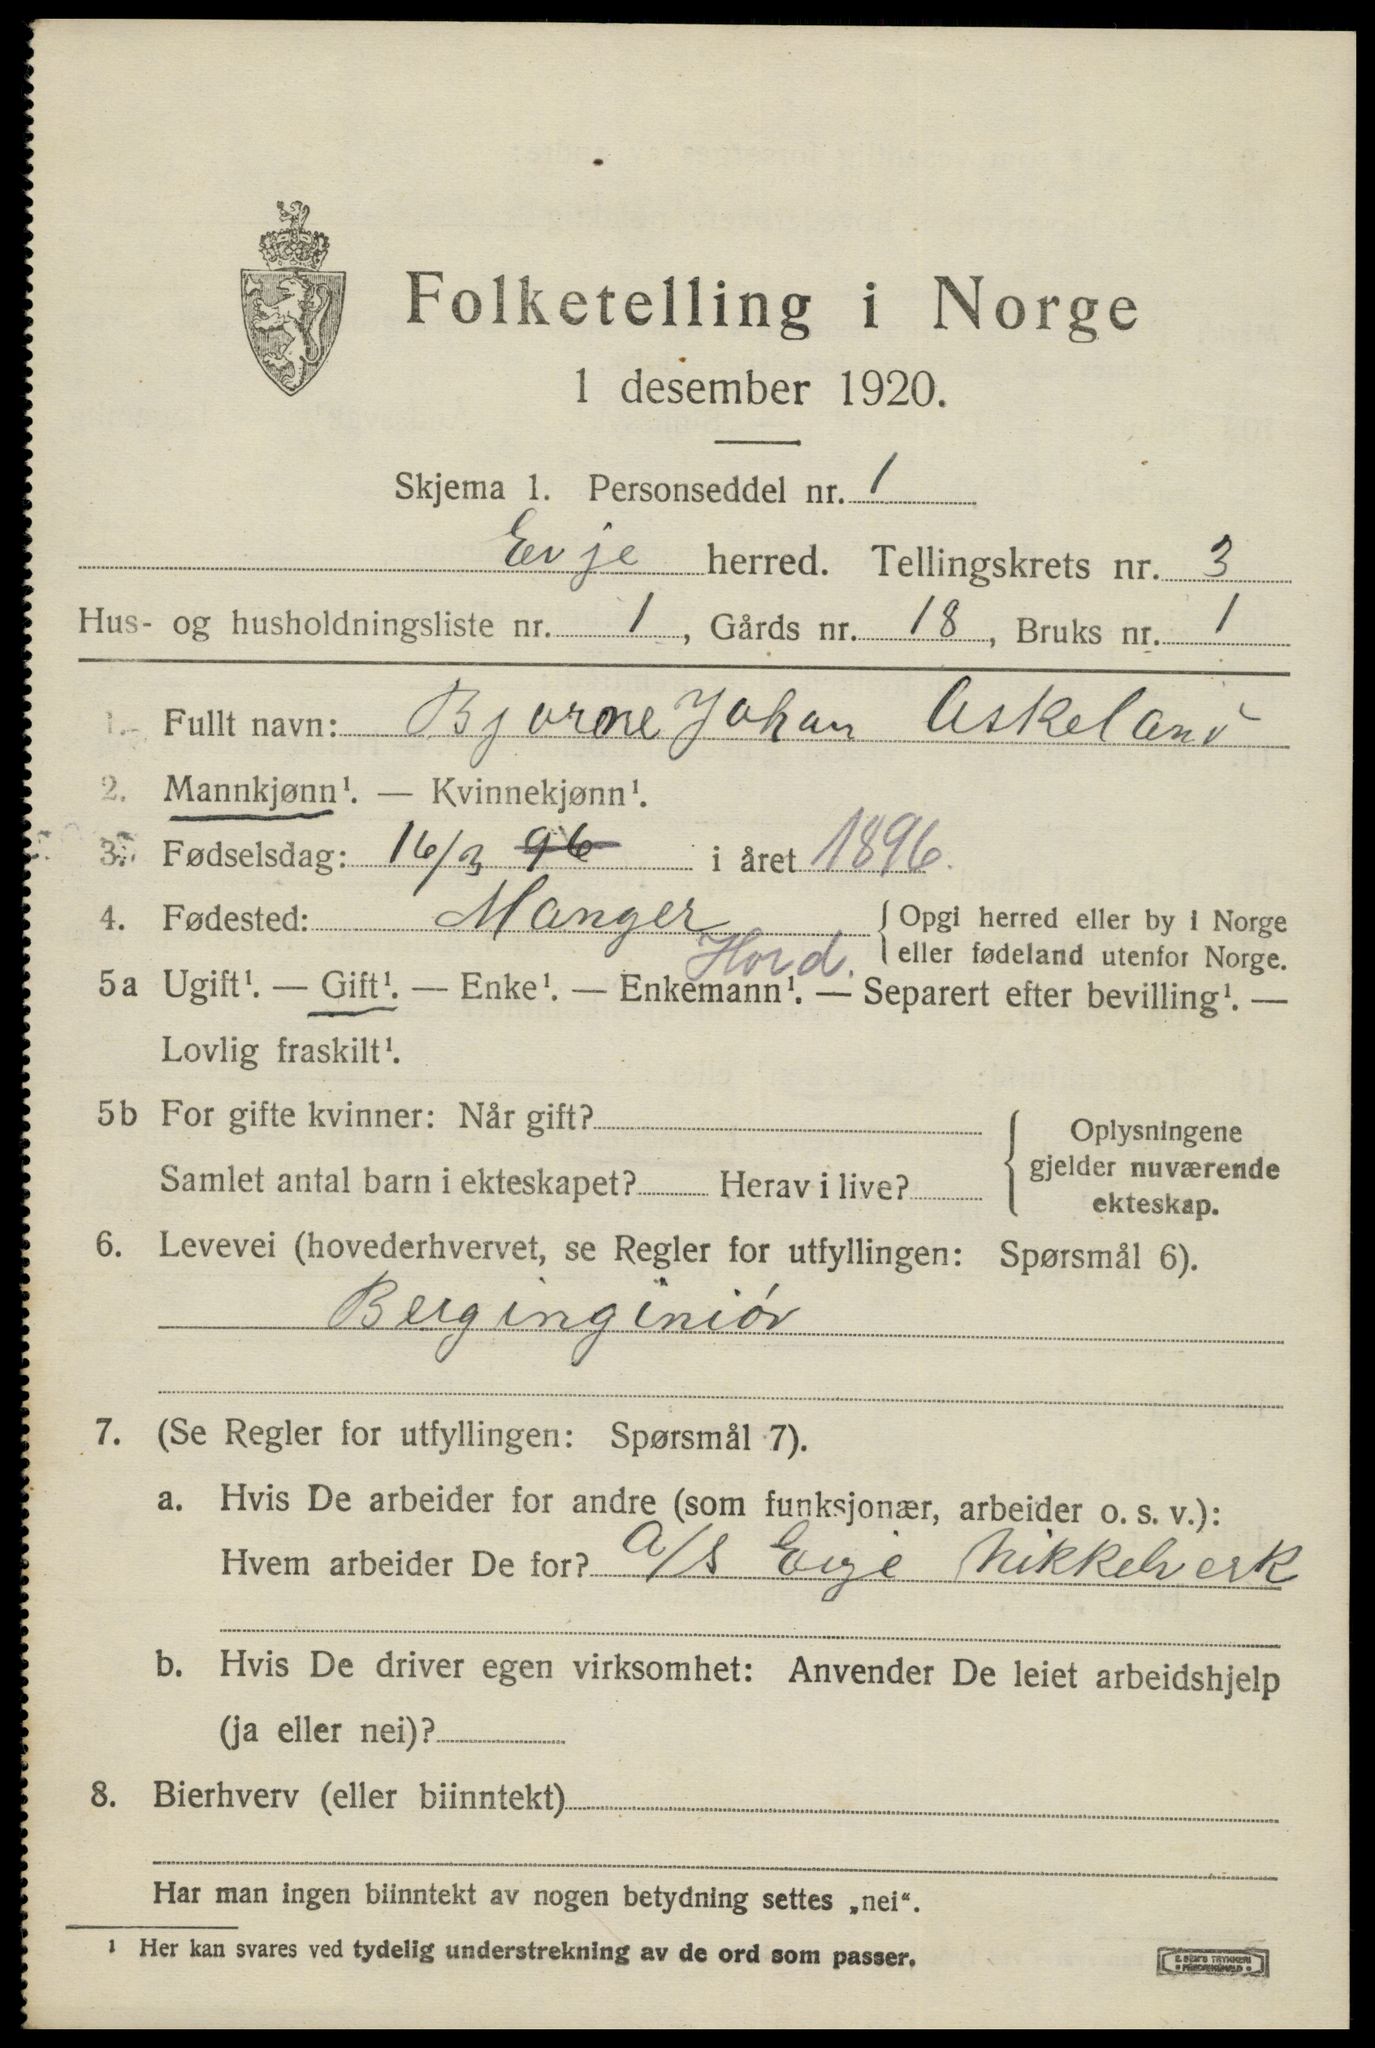 Folketelling i Norge
1 desember 1920.
Skjema 1. Personseddel nr. 1
Evje herred. Tellingskrets nr. 3
Hus- og husholdningsliste nr. 1, Gårds nr. 18, Bruks nr. 1
1. Fullt navn: Bjarne Johan Askeland
2. Mannkjønn¹. — Kvinnekjønn¹.
3. Fødselsdag: 16/3 96 i året 1896.
4. Fødested: Manger { Opgi herred eller by i Norge
Hord. eller fødeland utenfor Norge.
5a Ugift¹. — Gift¹. — Enke¹. — Enkemann¹. — Separert efter bevilling¹. —
Lovlig fraskilt¹.
5b For gifte kvinner: Når gift?
Samlet antal barn i ekteskapet? Herav i live?
{ Oplysningene
gjelder nuværende
ekteskap.
6. Levevei (hovederhvervet, se Regler for utfyllingen: Spørsmål 6).
Berginginiör
7. (Se Regler for utfyllingen: Spørsmål 7).
a. Hvis De arbeider for andre (som funksjonær, arbeider o. s. v.):
Hvem arbeider De for? A/S Evje Nikkelverk
b. Hvis De driver egen virksomhet: Anvender De leiet arbeidshjelp
(ja eller nei)?
8. Bierhverv (eller biinntekt)
Har man ingen biinntekt av nogen betydning settes „nei“.
¹ Her kan svares ved tydelig understrekning av de ord som passer.